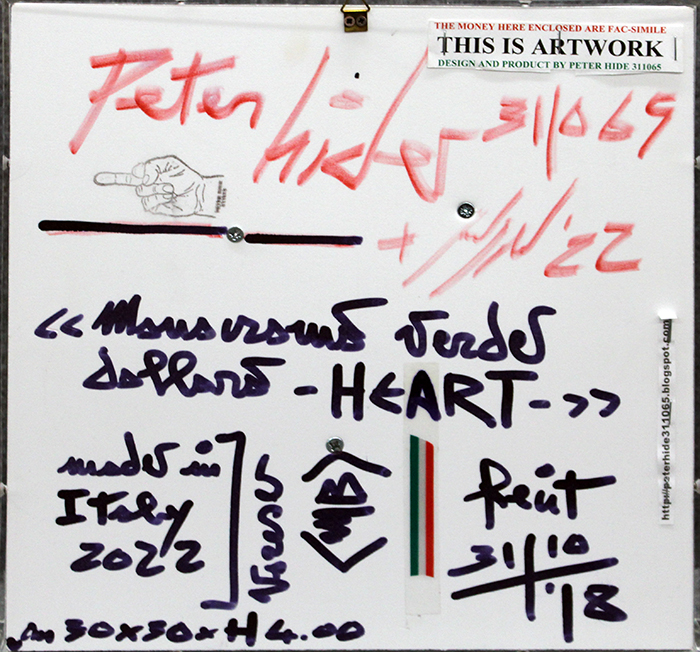 THE MONEY HERE ENCLOSED ARE FAC-SIMILE
THIS IS ARTWORK
DESIGN AND PRODUCT BY PETER HIDE 311065
Peter
hide 311065
+ '22
<< Monocromo verde
dollaro - HEART - >>
made in
Italy
2022
Verso
<MB>
http://peterhide311065.blogspot.com
31/10
'18
cm 30x30xH 4.00